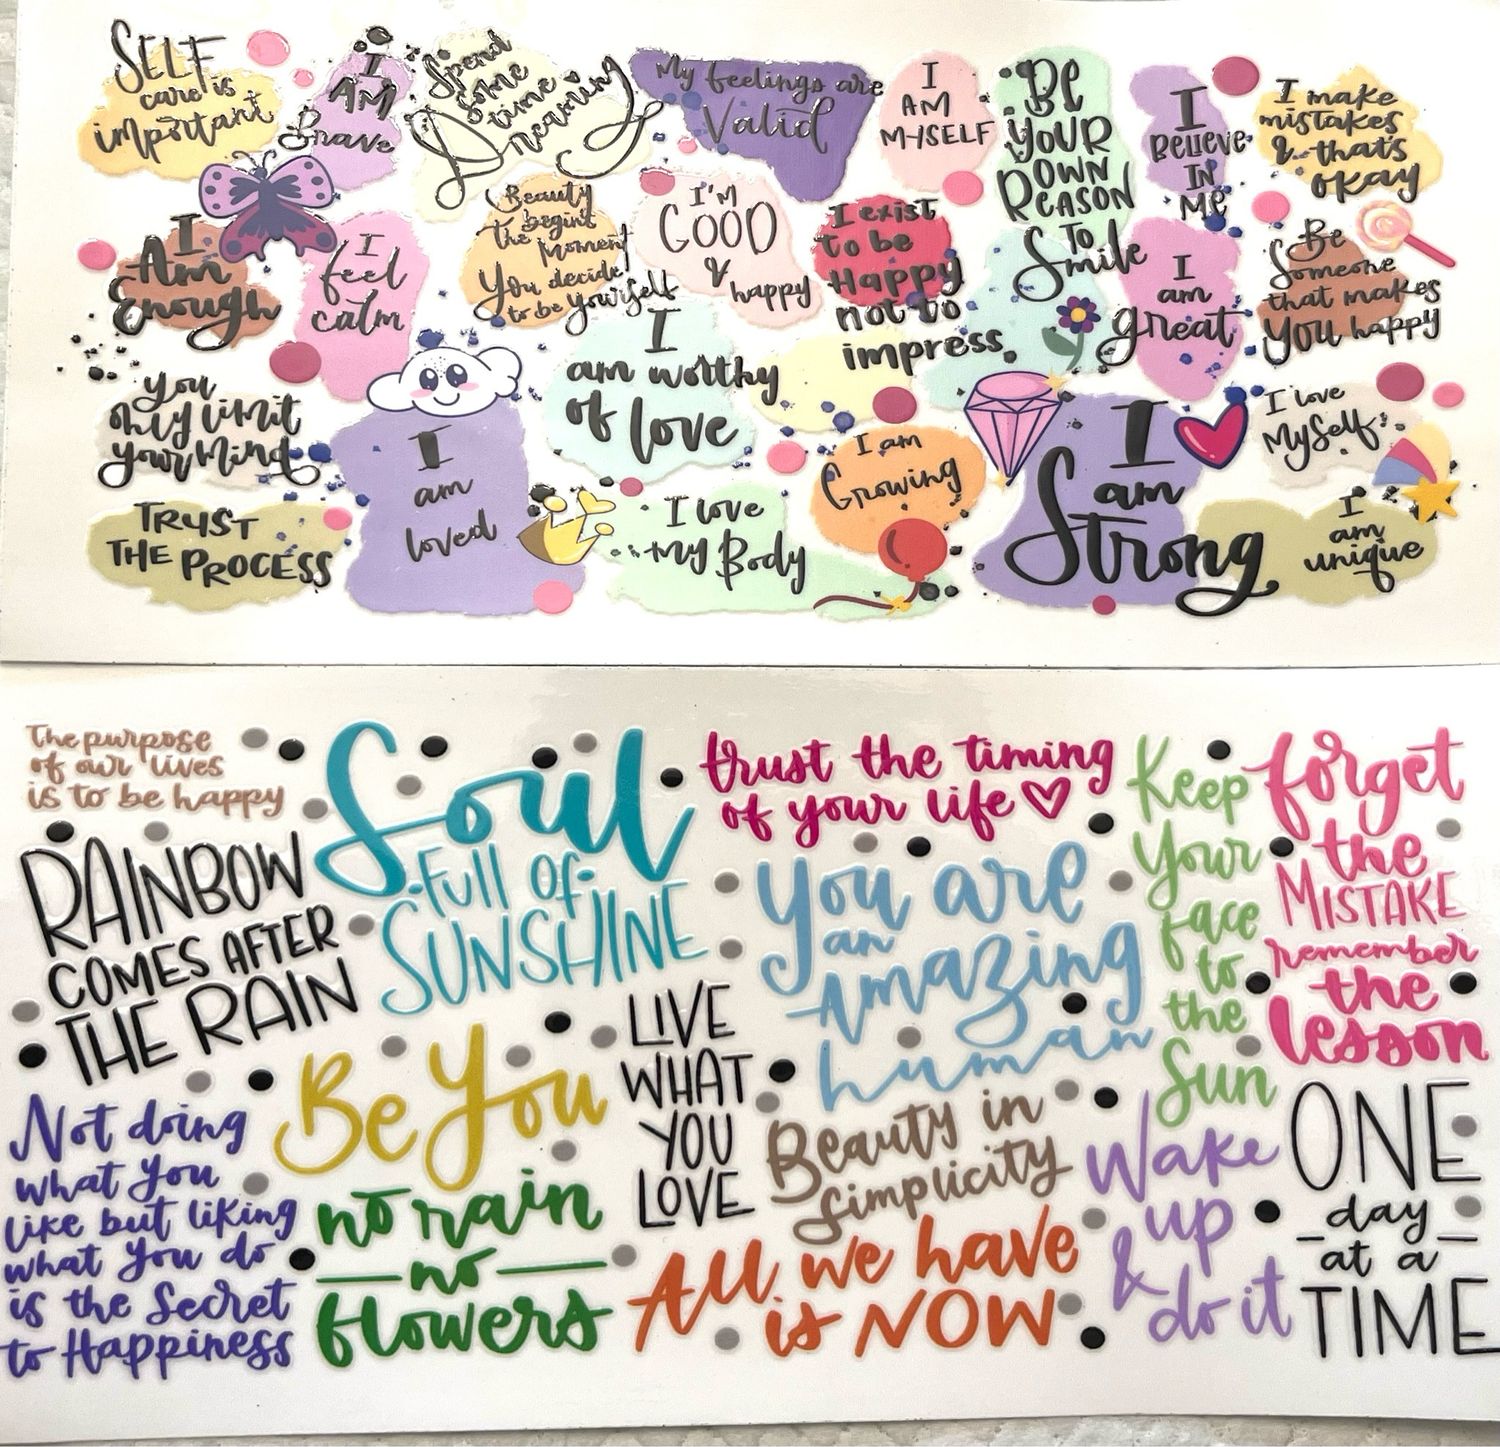 SELF
care is
important
I
AM
Brave
Spend
some
time
Dreaming
My feelings are
Valid
I
AM
MYSELF
BE
YOUR
OWN
REASON
TO
Smile
I
BELIEVE
IN
ME
I make
mistakes
& that's
okay
I
Am
Enough
I
feel
calm
Beauty
begins
the Moment
You decide
to be Yourself
I'M
GOOD
&
happy
I exist
to be
Happy
not to
impress
I
am
great
Be
Someone
that makes
You happy
You
only limit
your Mind
I
am
loved
I
am worthy
of love
I am
Growing
I
am
Strong
I love
MySelf
TRUST
THE PROCESS
I love
My Body
I
am
unique
The purpose
of our lives
is to be happy
Soul
Full of
SUNSHINE
trust the timing
of your life
Keep
Your
face
to
the
Sun
forget
the
MISTAKE
remember
the
lesson
RAINBOW
COMES AFTER
THE RAIN
You are
an
Amazing
human
Be You
LIVE
WHAT
YOU
LOVE
Beauty in
Simplicity
Wake
up
&
do it
ONE
day
at a
TIME
Not doing
what You
like but liking
what You do
is the Secret
to Happiness
no rain
no
flowers
All we have
is NOW